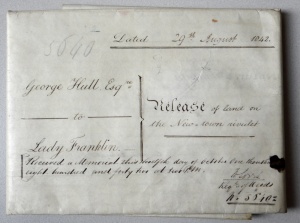 5640
Dated 29th August 1842.
George Hull, Esqre
to
Lady Franklin
Release of land on
the New-town rivulet
Received a Memorial this twelfth day of October One thousand
eight hundred and forty two at
Reg of Deeds
No